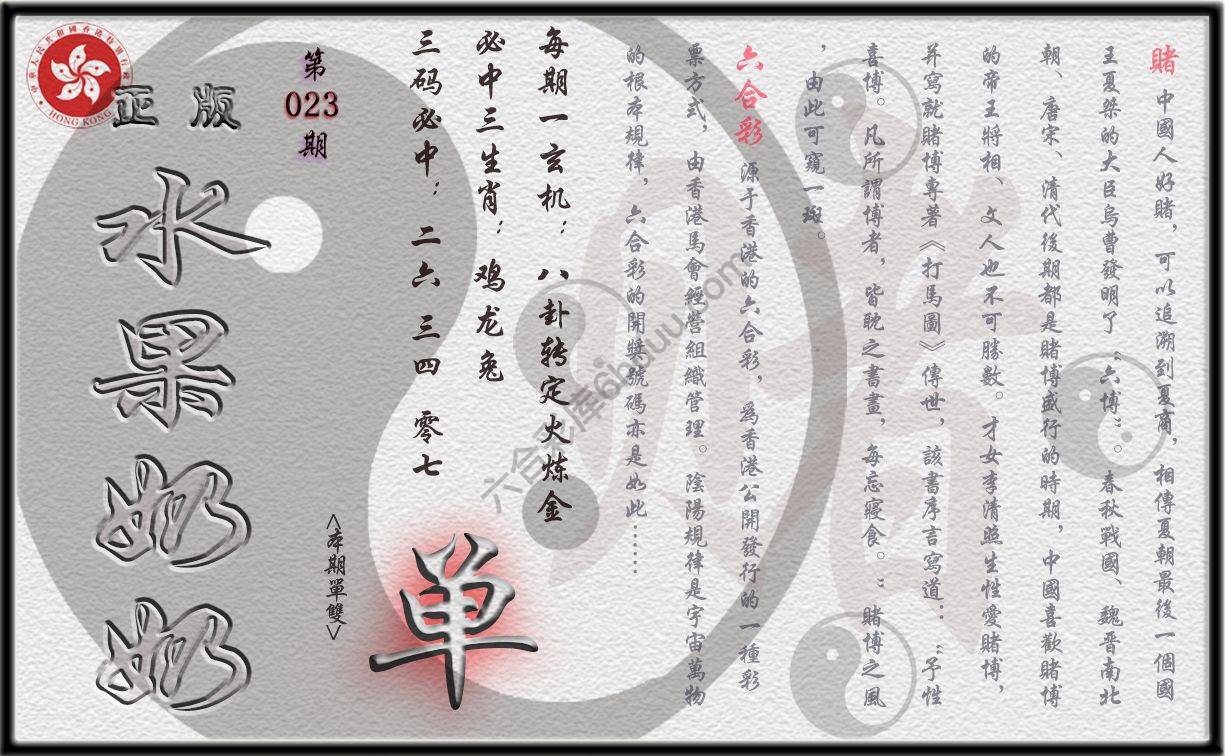 賭 中國人好賭，可以追溯到夏商，相傳夏朝最後一個國
王夏桀的大臣烏曹發明了“六博”。春秋戰國、魏晋南北
朝、唐宋、清代後期都是賭博盛行的時期，中國喜歡賭博
的帝王將相、文人也不可勝數。才女李清照生性愛賭博，
并寫就賭博專著《打馬圖》傳世，該書序言寫道：“予性
喜博。凡所謂博者，皆耽之書畫，每忘寢食。”賭博之風
，由此可窺一斑。
六合彩 源于香港的六合彩，爲香港公開發行的一種彩
票方式，由香港馬會經營組織管理。陰陽規律是宇宙萬物
的根本規律，六合彩的開獎號碼亦是如此……
每期一玄机：八卦转定火炼金
必中三生肖：鸡龙兔
三码必中：二六 三四 零七
第
023
期
<本期單雙>
单
正版
水果奶奶
中華人民共和國香港特別行政區
HONG KONG
六合彩库6hduu.com